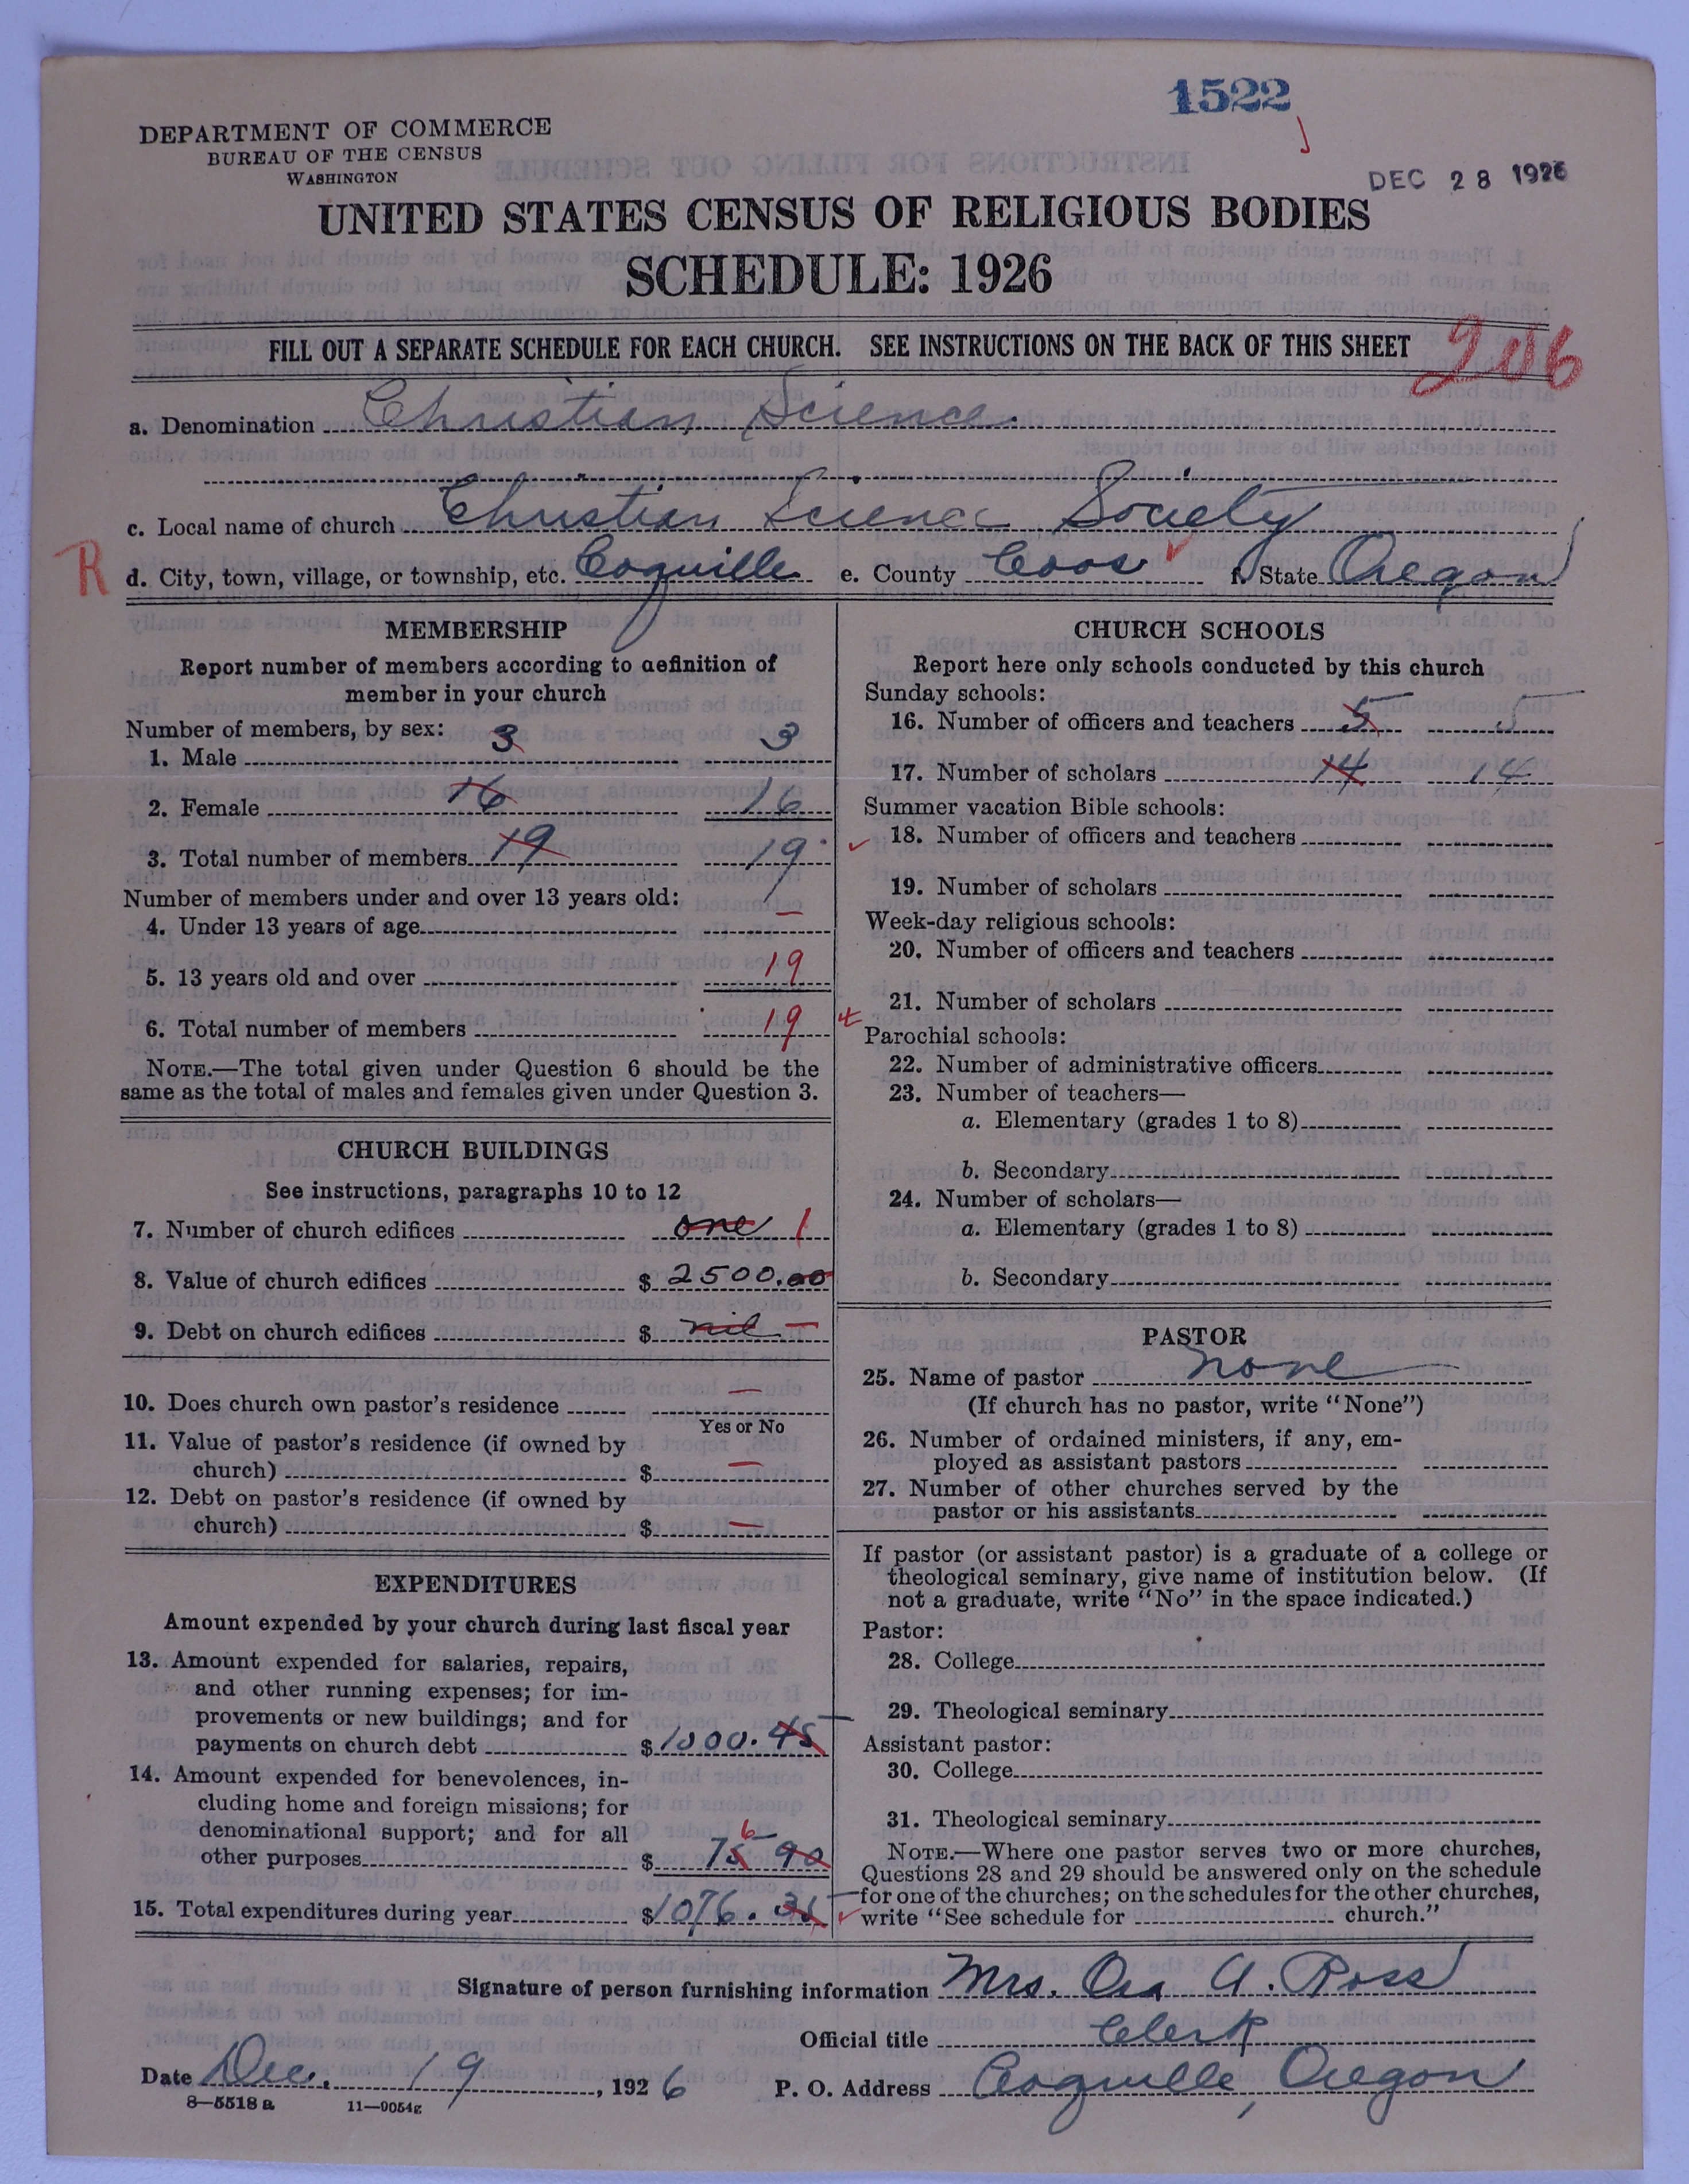 1522
DEPARTMENT OF COMMERCE
BUREAU OF THE CENSUS
WASHINGTON
DEC 28 1926
UNITED STATES CENSUS OF RELIGIOUS BODIES
SCHEDULE: 1926
FILL OUT A SEPARATE SCHEDULE FOR EACH CHURCH. SEE INSTRUCTIONS ON THE BACK OF THIS SHEET
206
a. Denomination Christian Science.
c. Local name of church Christian Science Society
R
d. City, town, village, or township, etc. Coquille e. County Coos f. State Oregon
MEMBERSHIP
Report number of members according to definition of
member in your church
Number of members, by sex:
1. Male 3 3
2. Female 16 16
3. Total number of members 19 19
Number of members under and over 13 years old:
4. Under 13 years of age —
5. 13 years old and over 19
6. Total number of members 19
NOTE.—The total given under Question 6 should be the
same as the total of males and females given under Question 3.
CHURCH BUILDINGS
See instructions, paragraphs 10 to 12
7. Number of church edifices one 1
8. Value of church edifices $ 2500.00
9. Debt on church edifices $ nil —
10. Does church own pastor's residence —
Yes or No
11. Value of pastor's residence (if owned by
church) $ —
12. Debt on pastor's residence (if owned by
church) $ —
EXPENDITURES
Amount expended by your church during last fiscal year
13. Amount expended for salaries, repairs,
and other running expenses; for im-
provements or new buildings; and for
payments on church debt $ 1000.45
14. Amount expended for benevolences, in-
cluding home and foreign missions; for
denominational support; and for all
6
other purposes $ 75 90
15. Total expenditures during year $ 1076.35
CHURCH SCHOOLS
Report here only schools conducted by this church
Sunday schools:
16. Number of officers and teachers 5 5
17. Number of scholars 14 14
Summer vacation Bible schools:
18. Number of officers and teachers
19. Number of scholars
Week-day religious schools:
20. Number of officers and teachers
21. Number of scholars
Parochial schools:
22. Number of administrative officers
23. Number of teachers—
a. Elementary (grades 1 to 8)
b. Secondary
24. Number of scholars—
a. Elementary (grades 1 to 8)
b. Secondary
PASTOR
25. Name of pastor none
(If church has no pastor, write "None")
26. Number of ordained ministers, if any, em-
ployed as assistant pastors
27. Number of other churches served by the
pastor or his assistants
If pastor (or assistant pastor) is a graduate of a college or
theological seminary, give name of institution below. (If
not a graduate, write "No" in the space indicated.)
Pastor:
28. College
29. Theological seminary
Assistant pastor:
30. College
31. Theological seminary
NOTE.—Where one pastor serves two or more churches,
Questions 28 and 29 should be answered only on the schedule
for one of the churches; on the schedules for the other churches,
write "See schedule for church."
Signature of person furnishing information Mrs. Ora A. Ross
Official title Clerk
Date Dec. 19, 1926 P. O. Address Coquille, Oregon
8—5518 a 11—9054g